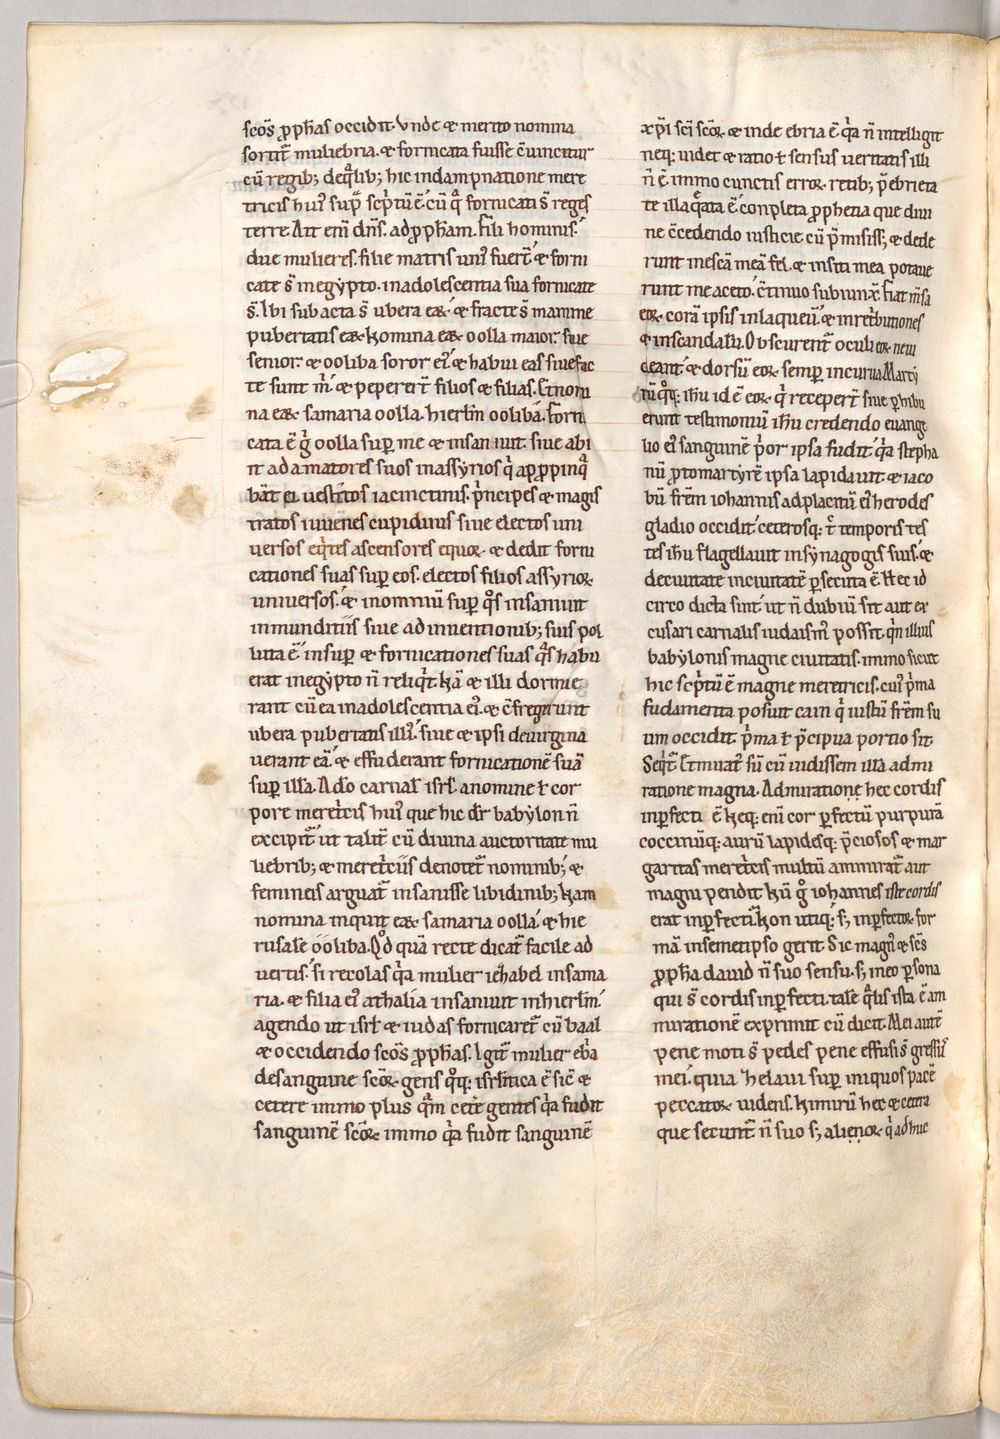 scos̄ ꝓph̄as occidit. Vnde & merito nomina
sortit̄ muliebria. & fornicata fuisse c̄uincitur
cū regib; deq̄lib; hic indampnatione mere
tricis hui᷒ sup̄ sc̄ptū ē. cū q̄ fornicati s̄ reges
terre. Ait eni dn̄s. ad ꝓph̄am. Fili hominis.
due mulieres. filie matris uni᷒ fuer̄t. & forni
cate s̄ inegypto. inadolescentia sua fornicate
s̄. Ibi subacta s̄ ubera eaꝝ. & fracte s̄ mamme
pubertatis eaꝝ. Nomina eaꝝ oolla maior. siue
senior. & ooliba soror ei᷒. & habui eas siue fac
te sunt m̄. & peperer̄t filios & filias. Et nomi
na eaꝝ samaria oolla. hierlm̄ oolibā. Forni
cata ē ḡ oolla sup̄ me & insaniuit. siue abi
it ad amatores suos inassyrios q̄ apꝓpinq̄
bāt ei. uestitos iacinctinis. p̄ncipes & magis
tratos iuuenes cupidinis siue electos uni
uersos eq̄tes ascensores equoꝝ. & dedit forni
cationes suas sup̄ eos. electos filios assyrioꝝ
uniuersos. & inomniū sup̄ q̄s insaniuit
inmunditiis siue ad inuentionib; suis pol
luta ē insup̄ & fornicationes suas q̄s habu
erat inegypto n̄ reliq̄t. Nā & illi dormie
rant cū ea inadolescentia ei᷒. & c̄fregerunt
ubera pubertatis illi᷒. siue & ipsi deuirgina
uerant eā. & effuderant fornicationē suā
sup̄ illā. Adō carnal̄ isrl̄ anomine ł cor
pore meret̄cis hui᷒ que hic dr̄ babylon n̄
excipit̄. ut talit̄ cū diuina auctoritate mu
liebrib; & meret̄ciis denotet̄ nominib; &
femineis arguat̄ insanisse libidinib; Nam
nomina inquit eaꝝ samaria oolla. & hie
rusalē ooliba. Qd̄ quā recte dicat̄ facile ad
uertis. si recolas q̄a mulier iehabel insama
ria. & filia ei᷒ athalia insaniuit inhierlm̄.
agendo ut isrl̄ & iudas fornicaret̄ cū baal
& occidendo scos̄ ꝓph̄as. Igit̄ mulier eb̄a
desanguine scōꝝ. gens q̄q; isrl̄itica ē sic̄ &
cetere immo plus q̄m cet̄e gentes q̄a fudit
sanguinē scōꝝ. immo q̄a fudit sanguinē
xp̄i sc̄i scōꝝ. & inde ebria ē q̄a n̄ intelligit
neq; uidet & ratio ł sensus ueritatis illi
n̄ ē immo cunctis erroꝝ retib; p̄ ebrieta
te illaq̄ata ē. conpleta ꝓphetia que diui
ne c̄cedendo iusticie cū p̄misiss; & dede
runt inescā meā fel. & insiti mea potaue
runt me aceto. c̄tinuo subiunx̄. Fiat mēsa
eoꝝ corā ipsis inlaqueū. & inret̄butiones
& inscandalū. Obscurent̄ oculi eoꝝ neui
deant. & dorsū eoꝝ semp̄ incurua. Marty
rū q̄q; ih̄u id ē eoꝝ q̄ receper̄t siue ꝑhibu
erunt testimoniū ih̄u credendo euange
lio ei᷒ sanguinē p̄or ipsa fudit. q̄a stepha
nū ꝓtomartyrē ipsa lapidauit & iaco
bū fr̄em iohannis adplacitū ei᷒ herodes
gladio occidit. ceterosq; t̄ temporis tes
tes ih̄u flagellauit insynagogis suis. &
deciuitate inciuitatē ꝑsecuta ē. Hec id
circo dicta sint. ut n̄ dubiū sit aut ex
cusari carnalis iudaism᷒ possit. q̄n illius
babylonis magne ciuitatis. immo sicut
hic sc̄ptū ē magne meretricis. cui᷒ p̄ma
fudamenta posuit cain q̄ iustū fr̄em su
um occidit p̄ma ł p̄cipua portio sit
Seq̄t̄. Et mirat᷒ sū cū uidissem illā admi
ratione magna. Admirationē hec cordis
inꝑfecti ē. Neq; eni cor ꝑfectū purpurā
coccinūq; aurū lapidesq; p̄ciosos & mar
garitas meret̄cis multū ammirat̄ aut
magni pendit. Nū ḡ iohannes iste cordis
erat inꝑfecti. Non utiq; s; inꝑfectoꝝ for
mā insemetipso gerit. Sic magn᷒ & sc̄s
ꝓph̄a dauid n̄ suo sensu. s; ineo ꝑsona
qui s̄ cordis inꝑfecti. tale q̄lis ista ē am
mirationē exprimit cū dicit. Mei autē
pene moti s̄ pedes pene effusi s̄ gressus
mei. quia helaui sup̄ iniquos pacē
peccatoꝝ uidens. Nimirū hec & cetera
que secunt̄ n̄ suo s; alienoꝝ q̄ adhuc